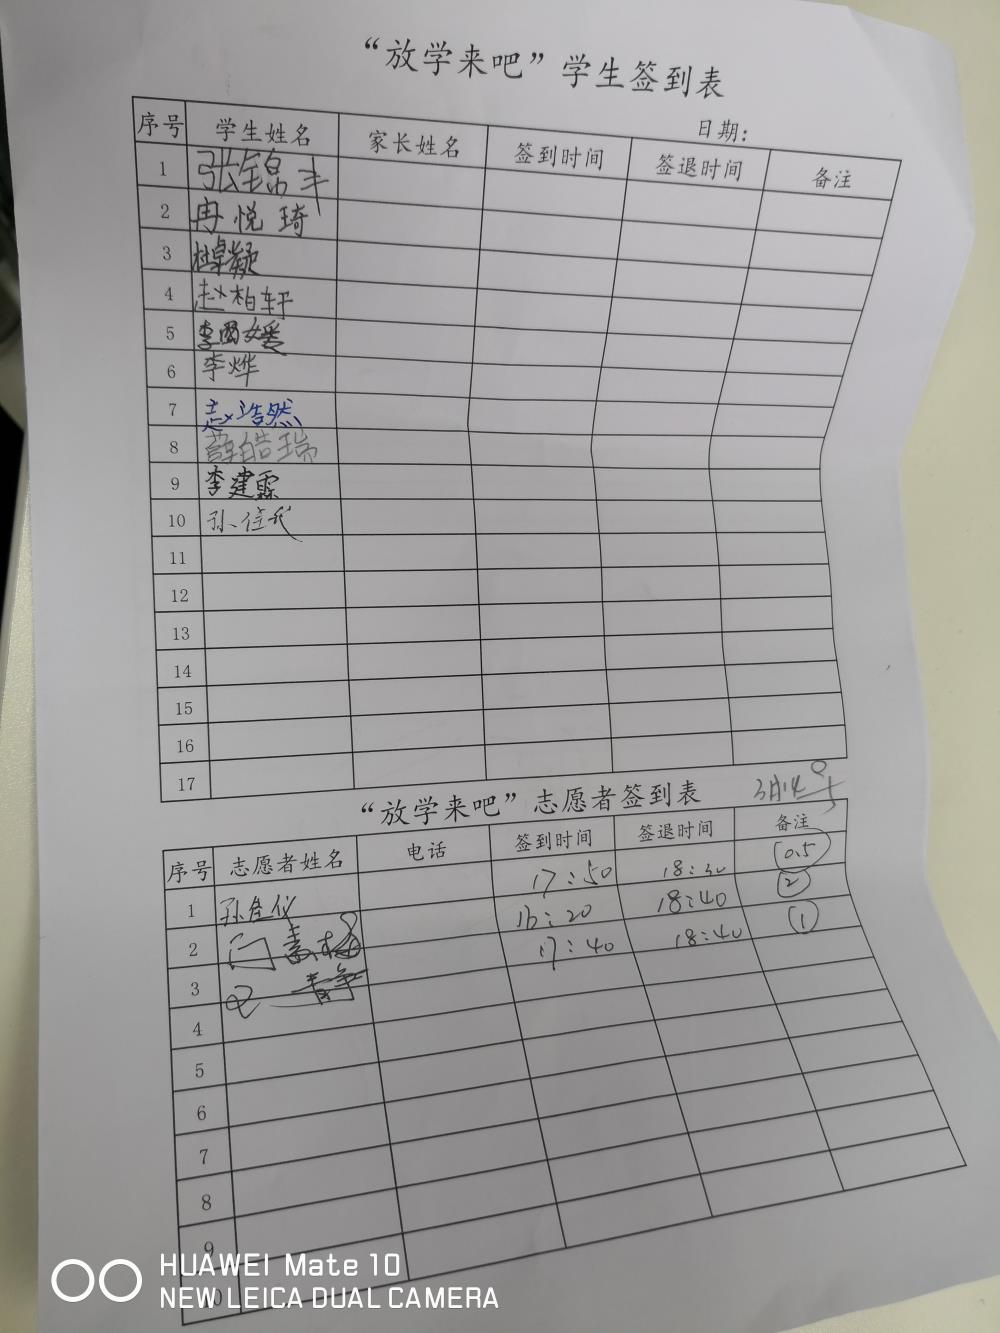 “放学来吧”学生签到表
日期：
序号 学生姓名 家长姓名 签到时间 签退时间 备注
1 张锦丰
2 冉悦琦
3
4 赵柏轩
5 李雨媛
6 李烨
7 赵浩然
8 薛皓瑞
9 李建霖
10 孙佳
11
12
13
14
15
16
17
“放学来吧”志愿者签到表
序号 志愿者姓名 电话 签到时间 签退时间 备注
1 孙佳仪 17:50 18:30 0.5
2 16:20 18:40 2
3 17:40 18:40 1
4
5
6
7
8
9
10
HUAWEI Mate 10
NEW LEICA DUAL CAMERA